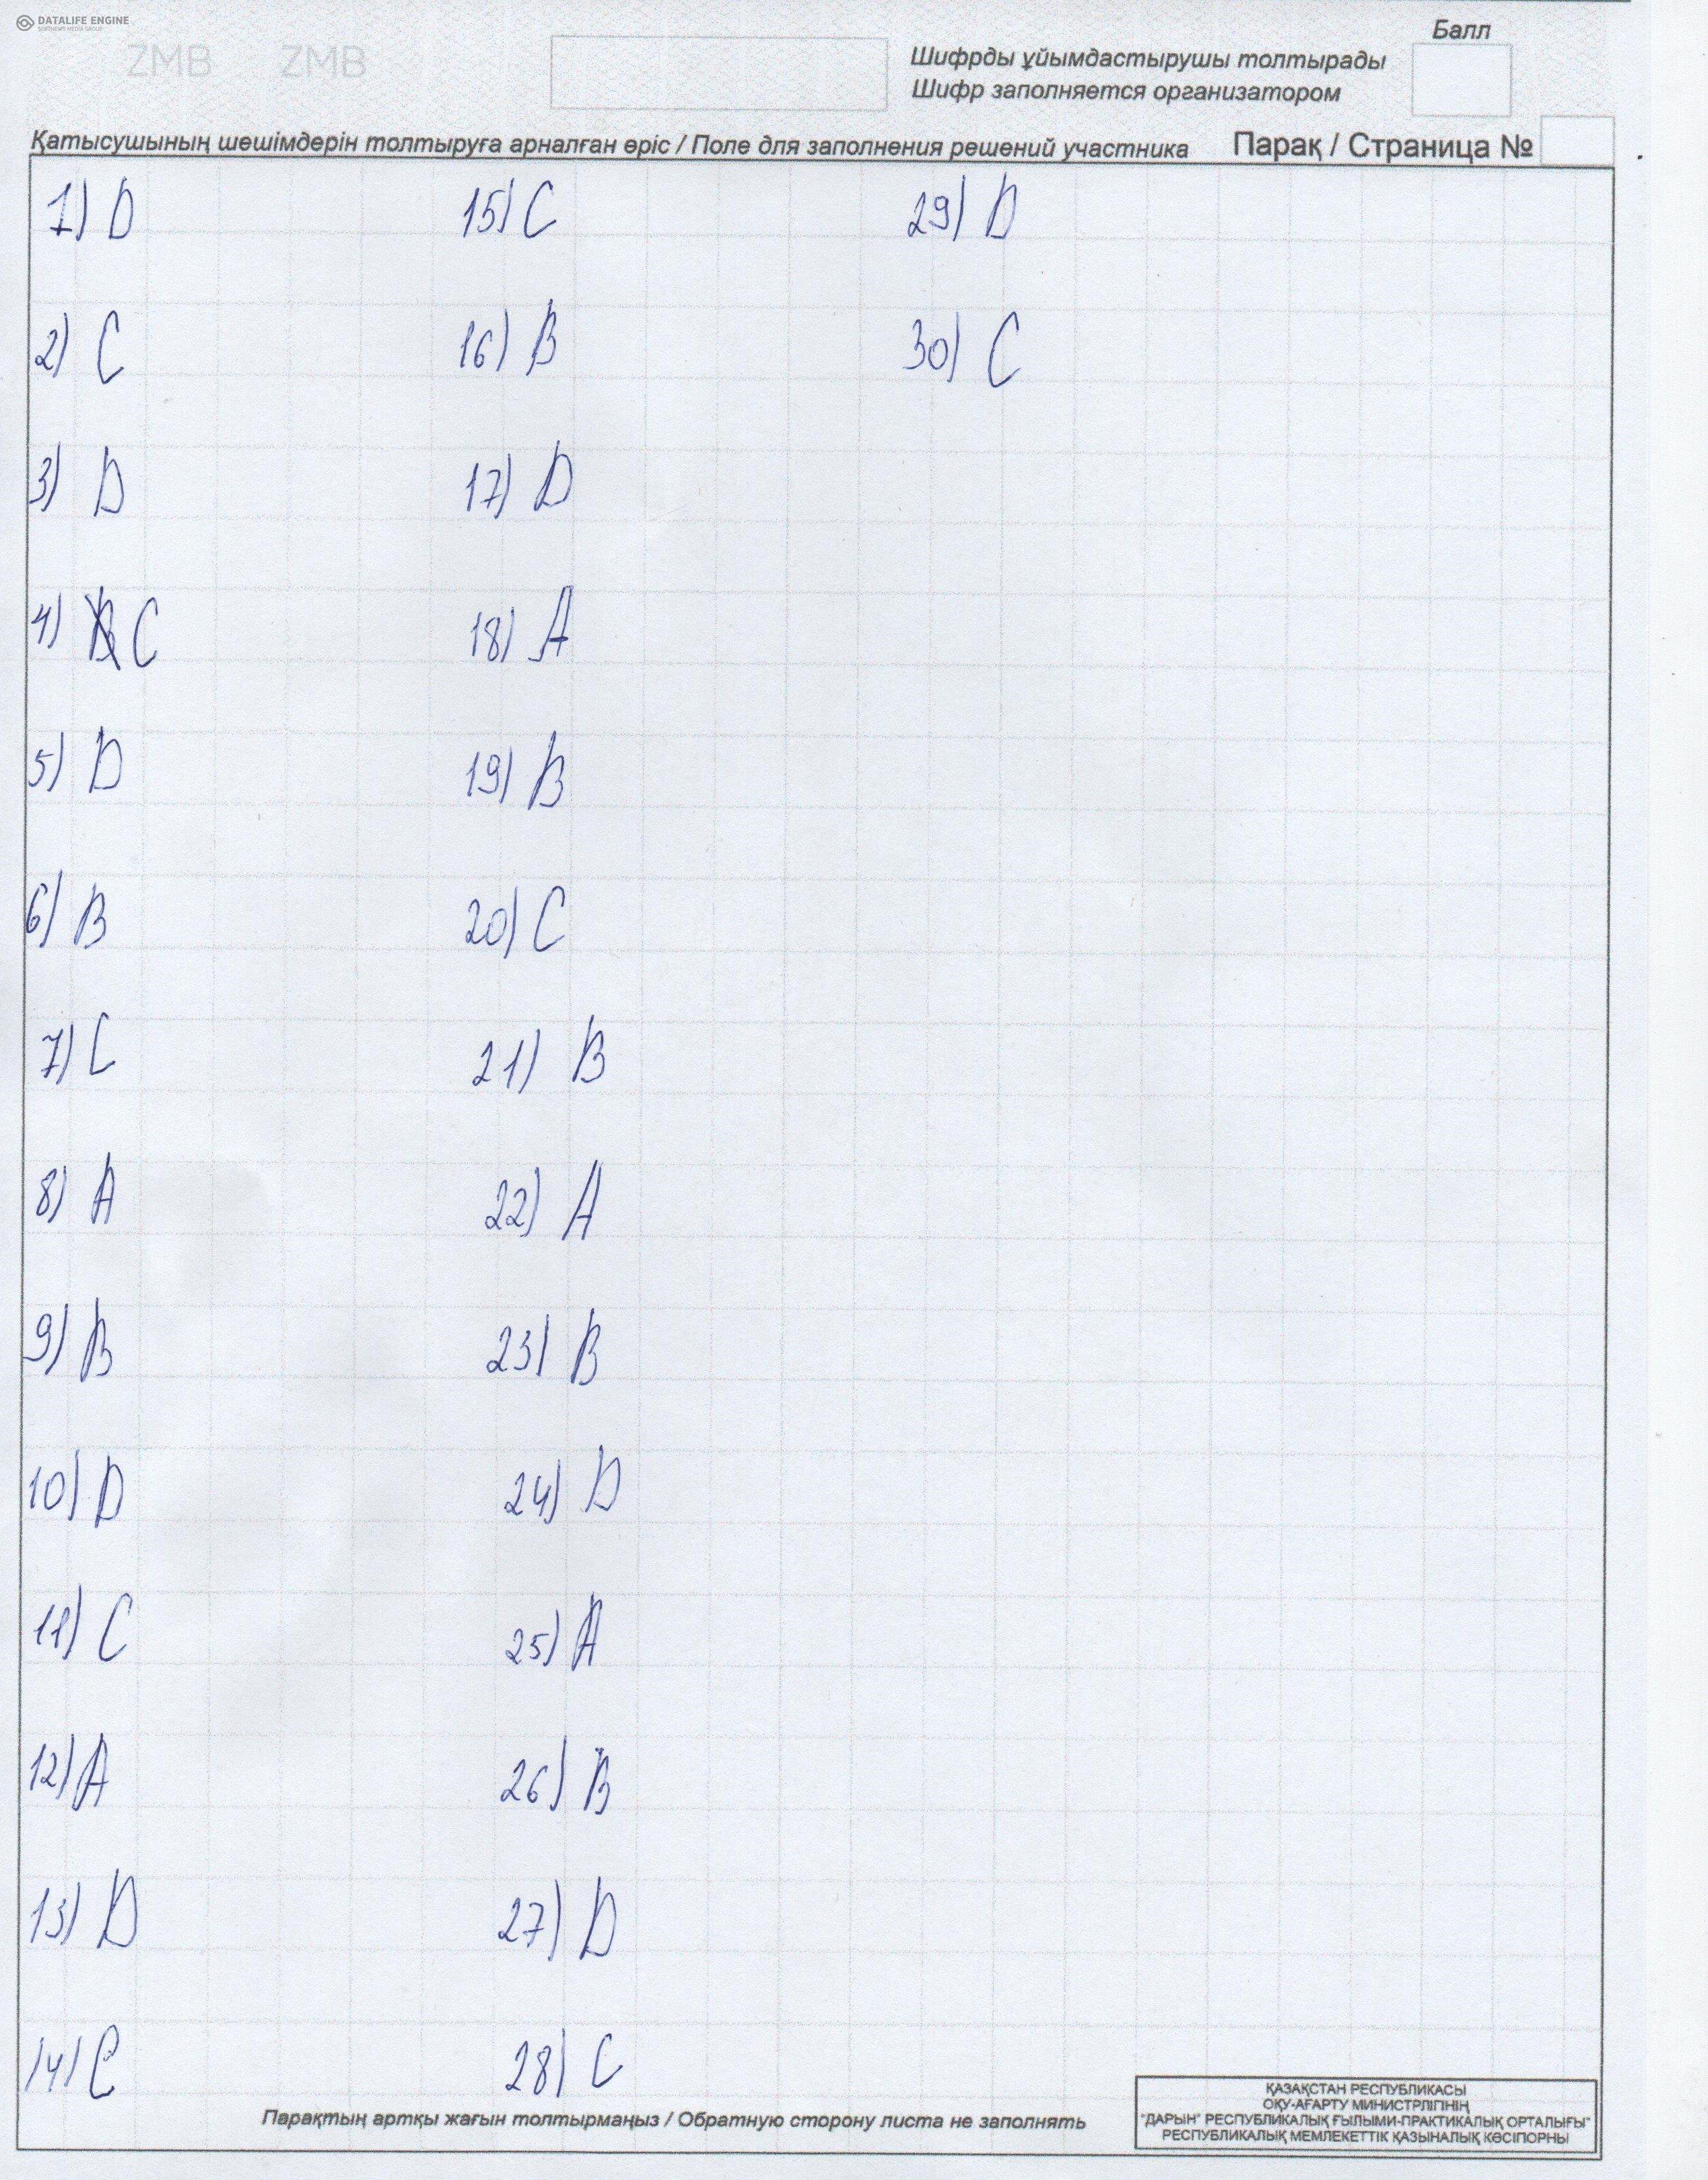 DATALIFE ENGINE
SOFTNEWS MEDIA GROUP
ZMB ZMB
Балл
Шифрды ұйымдастырушы толтырады
Шифр заполняется организатором
Қатысушының шешімдерін толтыруға арналған өріс / Поле для заполнения решений участника Парақ / Страница №
1) D
2) C
3) D
4) C
5) D
6) B
7) C
8) A
9) B
10) D
11) C
12) A
13) D
14) C
15) C
16) B
17) D
18) A
19) B
20) C
21) B
22) A
23) B
24) D
25) A
26) B
27) D
28) C
29) D
30) C
Парақтың артқы жағын толтырмаңыз / Обратную сторону листа не заполнять
ҚАЗАҚСТАН РЕСПУБЛИКАСЫ
ОҚУ-АҒАРТУ МИНИСТРЛІГІНІҢ
"ДАРЫН" РЕСПУБЛИКАЛЫҚ ҒЫЛЫМИ-ПРАКТИКАЛЫҚ ОРТАЛЫҒЫ"
РЕСПУБЛИКАЛЫҚ МЕМЛЕКЕТТІК ҚАЗЫНАЛЫҚ КӘСІПОРНЫ